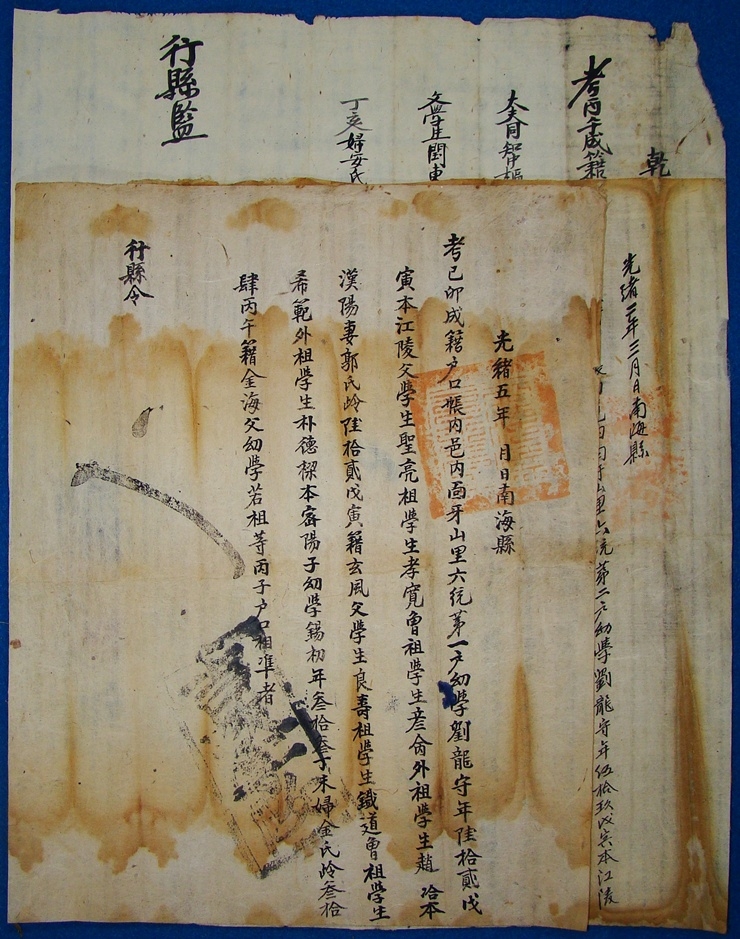 乾
考丙午成籍
文學生閔東
丁亥婦安氏
行縣監
光緒二年三月日南海縣
里六統第二戶幼學劉龍守年伍拾玖戊寅本江陵
光緒五年 月日南海縣
考己卯成籍戶口帳內邑內面牙山里六統第一戶幼學劉龍守年陸拾貳戊
寅本江陵父學生聖亮祖學生孝寬曾祖學生彦俞外祖學生趙 洽本
漢陽妻郭氏齡陸拾貳戊寅籍玄風父學生良壽祖學生鐵道曾祖學生
希範外祖學生朴德樑本密陽子幼學錫初年叁拾叁丁未婦金氏齡叁拾
肆丙午籍金海父幼學若祖等丙子戶口相準者
行縣令